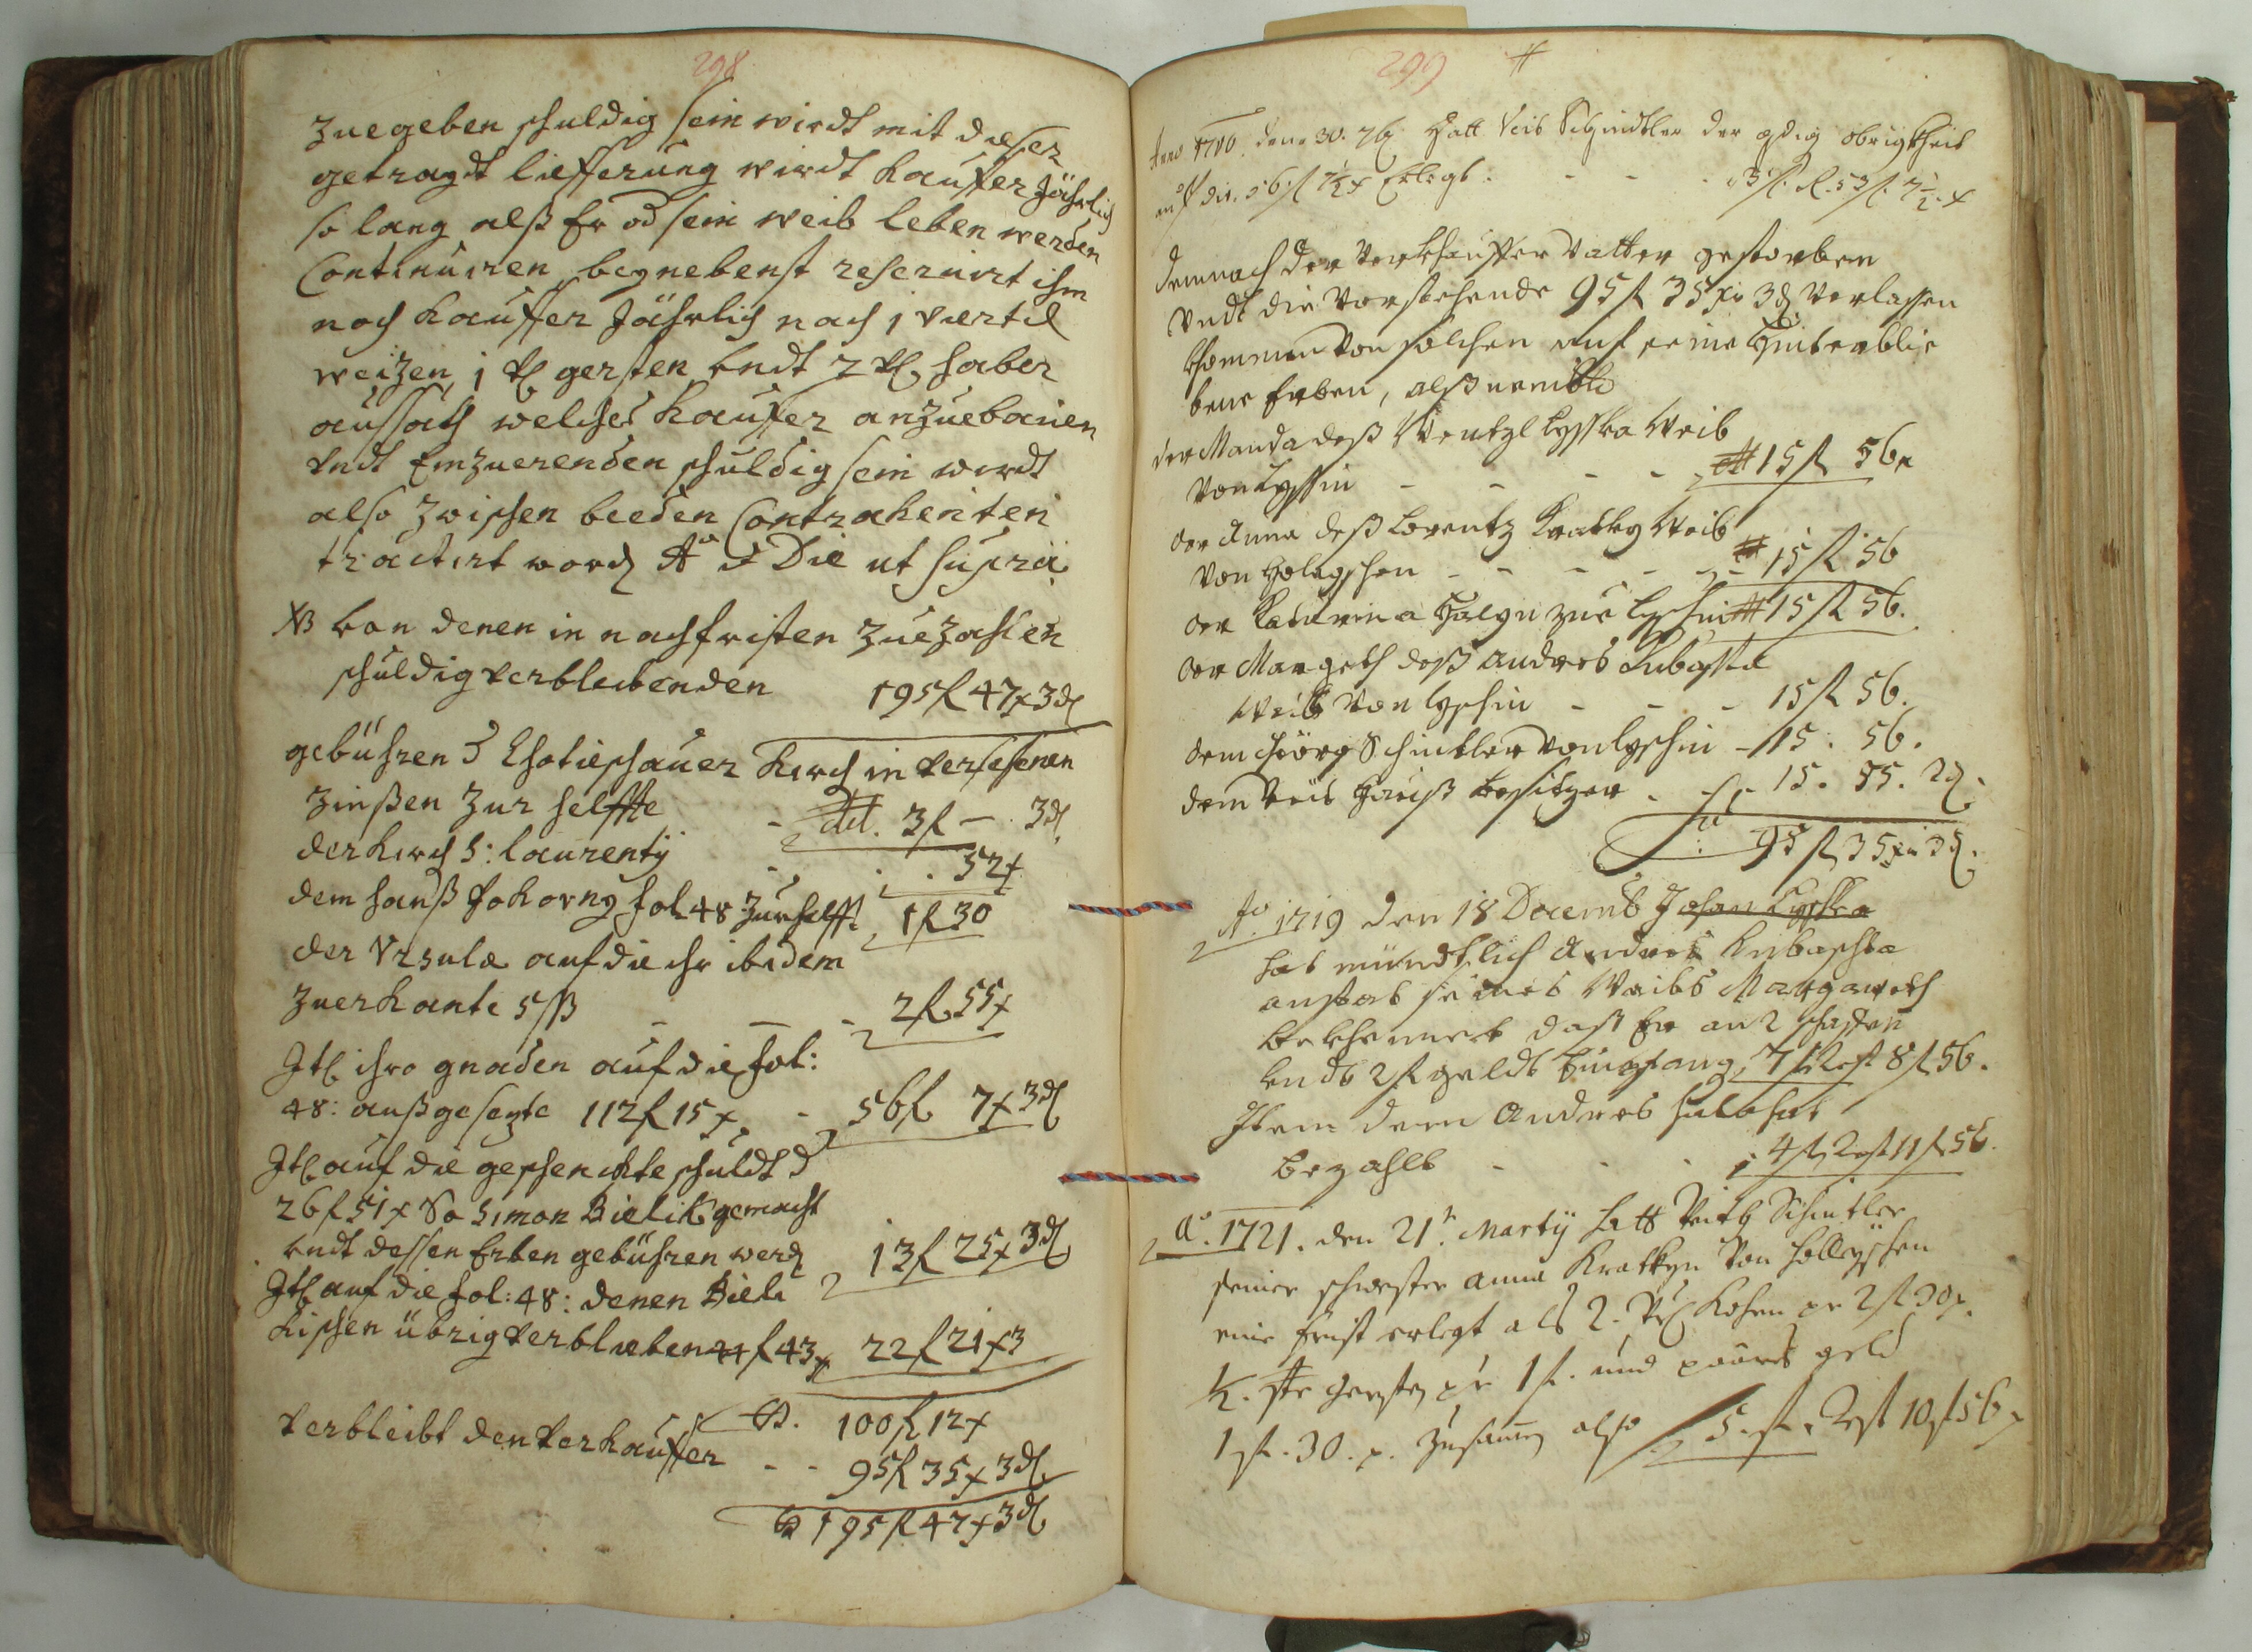 298
zuegeben schuldig sein wirdt mit dieser
getraydt liefferung wirdt Kauffer Jährlich
so lang alß Er od sein weib leben werden
Continuiren, beynebenst reseruirt ihm
noch Kauffer Jährlich nach 1 viertl
weizen, 1 vtl gersten vndt 2 vtl haber
aussath welches Kauffer anzuebauen
vndt Einzuerenden schuldig sein wirdt
also zwischen beeden Contrahenten
tractirt word Ao et Die ut supra.
NB von denen in nachfristen zuezahlen
schuldig verbleibenden 195 f 47 x 3 d
gebühren d Chotieschauer Kirch in versessenen
Zinßen zur helffte - det. 3 f — 3 d
der Kirch S: Laurentÿ - . . 52 x
dem hanß Pokorny fol 48 zur helfft 1 f 30
der Vrsula auf die ihr ibidem
zuerkante 5 ß - - - 2 f 55 x
Itl ihro gnaden auf die fol:
48: außgesezte 112 f 15 x - 56 f 7 x 3 d
Itl auf die geschenckte schuldt d
26 f 51 x So Simon Bielik gemacht
vndt dessen Erben gebühren werd 13 f 25 x 3 d
Itl auf die fol: 48: denen Bieli
kischen übrig verblieben 44 f 43 x 22 f 21 x 3
100 f 12 x
verbleibt den verkauffer - - 95 f 35 x 3 d
195 f 47 x 3 d
299
Anno 1716 den 30. 7b Hatt Veit Schindtler der gdig obrigkheit
auf die 56 f 7½ x Erlegt . - - - 3 f. R. 53 f. 7½ x
Demnach der Verkhauffer Vatter gestorben
Vndt die Vorstehende 95 f 35 xr 3 d Verlassen
khommen von solchen auf seine Hinterblie
bene Erben, alß nembl
der Manda deß Wentzl Lyska Weib
Von Lyschin - - - - 15 f 56 x
der Anna deß Lorentz Kratky Weib
Von Holeyschen - - - - 15 f 56
der Catarina Halyn zue Lyschin 15 f 56.
der Margeth deß Andres Kubaschta
Weib Von Lyschin - - - 15 f 56.
dem Geörg Schintler von Lyschin - 15. 56.
dem Veit Hauß besitzer - - 15. 55. 2 d.
95 f 35 xr 3 d.
Ao. 1719 den 18 Decemb Johan Lyska
hat mündtlich Andres Kubaschta
anstat seines Weibs Margareth
bekhennet daß Er an 2 schaffen
vndt 2 f geldt Empfang, 7 f Rest 8 f 56.
Item dem Andres
bezahlt - - - 4 f Rest 11 f 56.
Ao. 1721. den 21t. Martÿ hatt Veith Schintler
seiner schwester Anna Kratkyn Von Holleyschen
eine frist erlegt als 2. vtl Kohrn pr 2 f 30 x.
½. str Gersten pr 1 f. und paares geld
1 f. 30. x. zusamen also 5. f. Rest 10 f 56 x